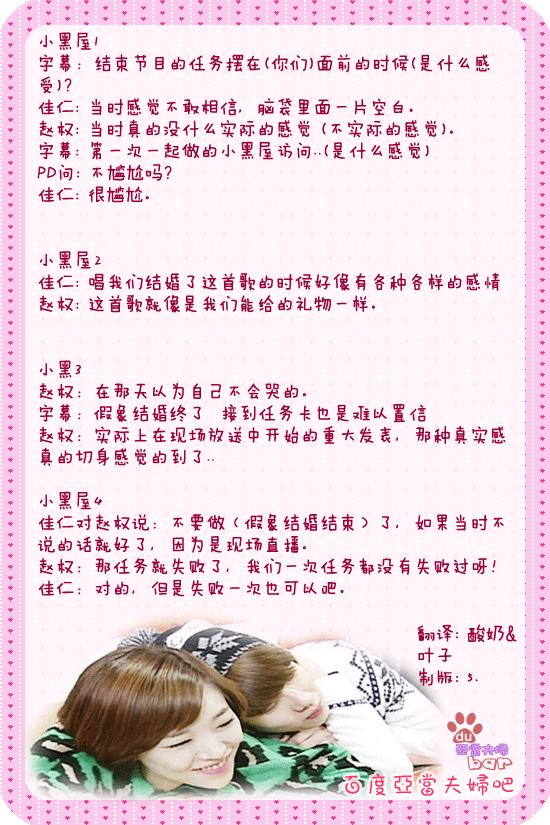 小黑屋1
字幕: 结束节目的任务摆在(你们)面前的时候(是什么感
受)?
佳仁: 当时感觉不敢相信, 脑袋里面一片空白。
赵权: 当时真的没什么实际的感觉 (不实际的感觉)。
字幕: 第一次一起做的小黑屋访问..(是什么感觉)
PD问: 不尴尬吗?
佳仁: 很尴尬。
小黑屋2
佳仁: 唱我们结婚了这首歌的时候好像有各种各样的感情
赵权: 这首歌就像是我们能给的礼物一样。
小黑3
赵权: 在那天以为自己不会哭的。
字幕: 假象结婚终了 接到任务卡也是难以置信
赵权: 实际上在现场放送中开始的重大发表, 那种真实感
真的切身感觉的到了..
小黑屋4
佳仁对赵权说: 不要做 (假象结婚结束) 了, 如果当时不
说的话就好了, 因为是现场直播。
赵权: 那任务就失败了, 我们一次任务都没有失败过呀!
佳仁: 对的, 但是失败一次也可以吧。
翻译: 酸奶&
叶子
制版: s.
du
亞當夫婦
bar
百度亞當夫婦吧